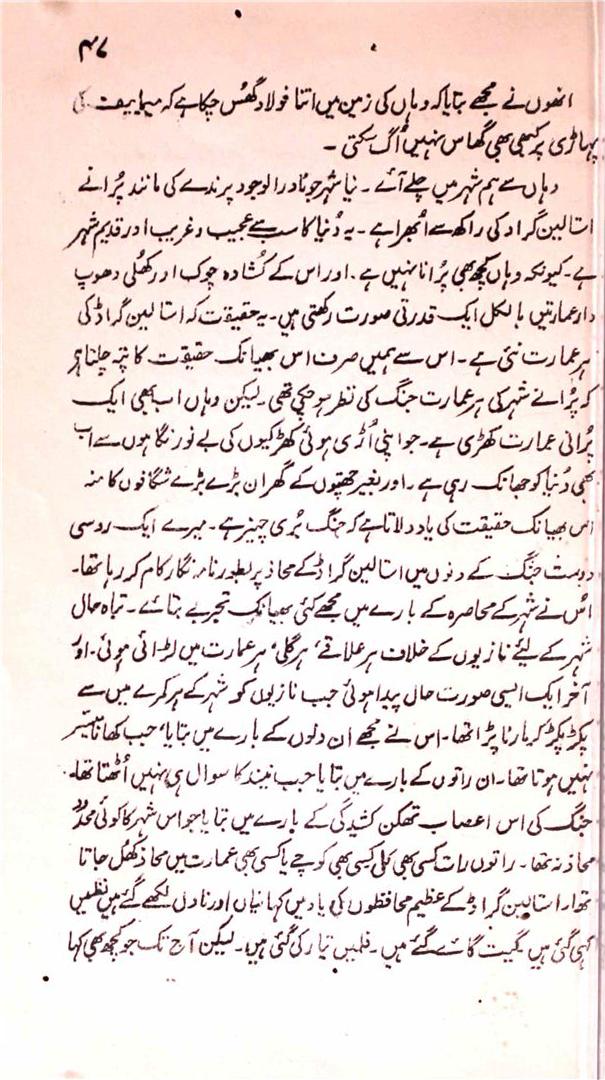 ۴۷
انھوں نے مجھے بتایا کہ وہاں کی زمین میں اتنا فولاد گھُس چکا ہے کہ میمایف کی
پہاڑی پر کبھی بھی گھاس نہیں اُگ سکتی ۔
وہاں سے ہم شہر میں چلے آئے ۔ نیا شہر جو نادرالوجود پرندے کی مانند پُرانے
استالین گراد کی راکھ سے اُبھرا ہے ۔ یہ دُنیا کا سب سے عجیب و غریب اور قدیم شہر
ہے ۔ کیونکہ وہاں کچھ بھی پُرانا نہیں ہے ۔ اور اس کے کُشادہ چوک اور کھُلی دھوپ
دار عمارتیں بالکل ایک قدرتی صورت رکھتی ہیں ۔ یہ حقیقت کہ استالین گراڈ کی
ہر عمارت نئی ہے ۔ اس سے ہمیں صرف اس بھیانک حقیقت کا پتہ چلتا ہے
کہ پُرانے شہر کی ہر عمارت جنگ کی نظر ہو چکی تھی ۔ لیکن وہاں اب بھی ایک
پُرانی عمارت کھڑی ہے ۔ جو اپنی اُڑی ہوئی کھڑکیوں کی بے نور نگاہوں سے اب
بھی دُنیا کو جھانک رہی ہے ۔ اور بغیر چھتوں کے گھر ان بڑے بڑے شگافوں کا منہ
اس بھیانک حقیقت کی یاد دلاتا ہے کہ جنگ بُری چیز ہے ۔ میرے ایک روسی
دوست جنگ کے دنوں میں استالین گراڈ کے محاذ پر بطور نامہ نگار کام کر رہا تھا ۔
اُس نے شہر کے محاصرہ کے بارے میں مجھے کئی بھیانک تجربے بتائے ۔ تباہ حال
شہر کے لئے نازیوں کے خلاف ہر علاقے، ہر گلی، ہر عمارت میں لڑائی ہوئی ۔ اور
آخر ایک ایسی صورت حال پیدا ہوئی جب نازیوں کو شہر کے ہر کمرے میں سے
پکڑ پکڑ کر مارنا پڑا تھا ۔ اس نے مجھے ان دنوں کے بارے میں بتایا، جب کھانا میسّر
نہیں ہوتا تھا ۔ ان راتوں کے بارے میں بتایا جب نیند کا سوال ہی نہیں اُٹھتا تھا ۔
جنگ کی اس اعصاب تھکن کشیدگی کے بارے میں بتایا جو اس شہر کا کوئی محدود
محاذ نہ تھا ۔ راتوں رات کسی بھی گلی کسی بھی کوچے یا کسی بھی عمارت میں محاذ کھُل جاتا
تھا ۔ استالین گراڈ کے عظیم محافظوں کی یاد میں کہانیاں اور ناول لکھے گئے ہیں نظمیں
کہی گئی ہیں گیت گائے گئے ہیں ۔ فلمیں تیار کی گئی ہیں ۔ لیکن آج تک جو کچھ بھی کہا